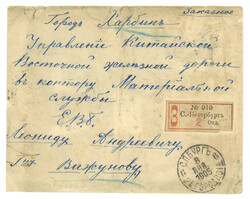 Заказное
Городъ Харбинъ
Управленіе Китайской
Восточной желѣзной дороги
въ контору Матеріальной
службы
Е.В.Б.
Леониду Андреевичу
Важунову
№ 919
С.-Петербургъ
2 Отд.
С.ПБУРГЪ
8
1905